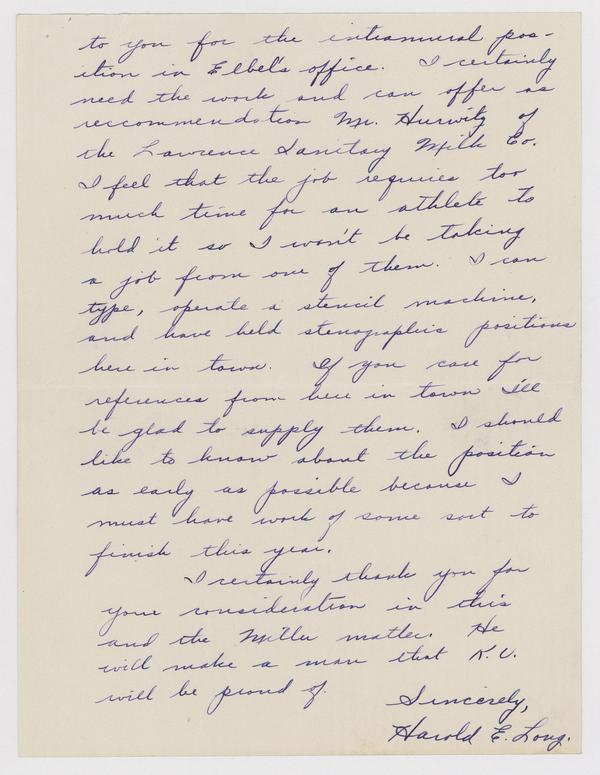 to you for the intramural pos-
ition in Elbel's office. I certainly
need the work and can offer as
reccommendation Mr. Hurwitz of
the Lawrence Sanitary Milk Co.
I feel that the job requires too
much time for an athlete to
hold it so I won't be taking
a job from one of them. I can
type, operate a stencil machine,
and have held stenographic positions
here in town. If you care for
references from here in town I'll
be glad to supply them. I should
like to know about the position
as early as possible because I
must have work of some sort to
finish this year.
I certainly thank you for
your consideration in this
and the Miller matter. He
will make a man that K.U.
will be proud of.
Sincerely,
Harold E. Long.